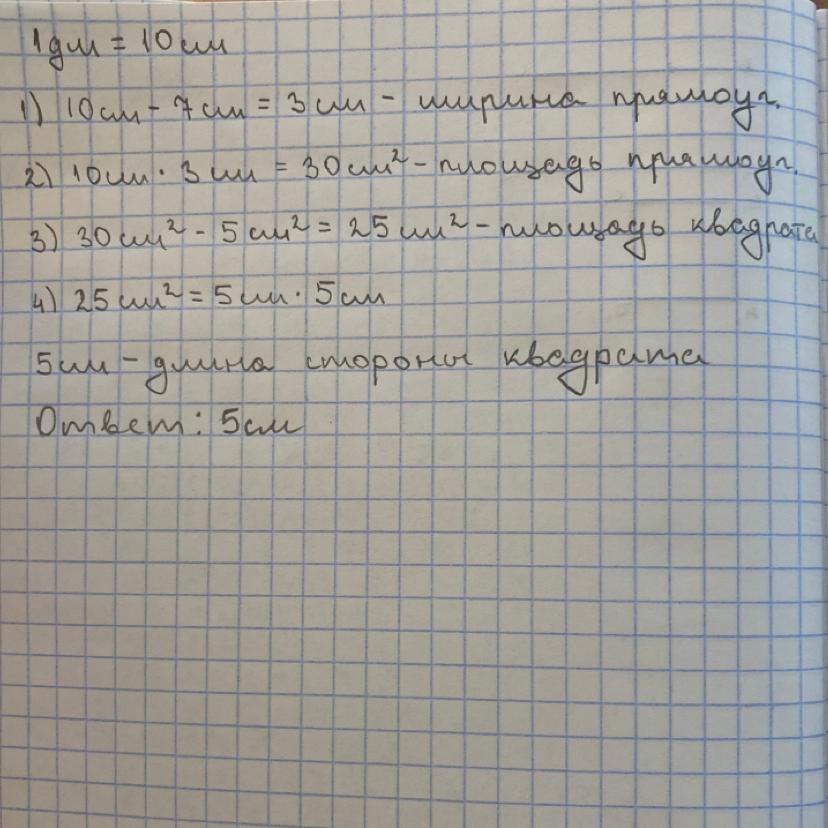 1дм = 10см
1) 10см - 7см = 3см - ширина прямоуг.
2) 10см · 3см = 30см² - площадь прямоуг.
3) 30см² - 5см² = 25см² - площадь квадрата
4) 25см² = 5см · 5см
5см - длина стороны квадрата
Ответ: 5см